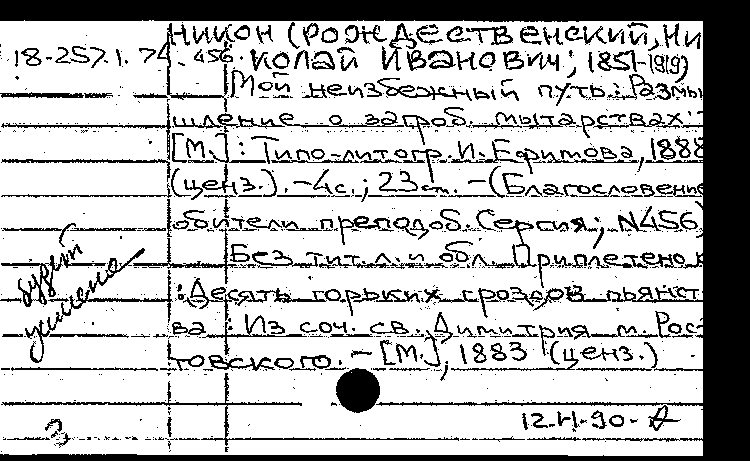 Никон (Рождественский, Ни
18-257.1.74.456. колай Иванович; 1851-1919)
Мой неизбежный путь: Размы
шление о загроб. мытарствах.-
[М.]: Типо-литогр. И. Ефимова, 1888
(ценз.).-4с.; 23см. -(Благословение
обители преподоб. Сергия; N456)
Без тит. л. и обл. Приплетено к
:Десять горьких гроздов пьянст
ва : Из соч. св. Димитрия м. Рос-
товского. - [М.], 1883 (ценз.)
будет
12.II-90-
3